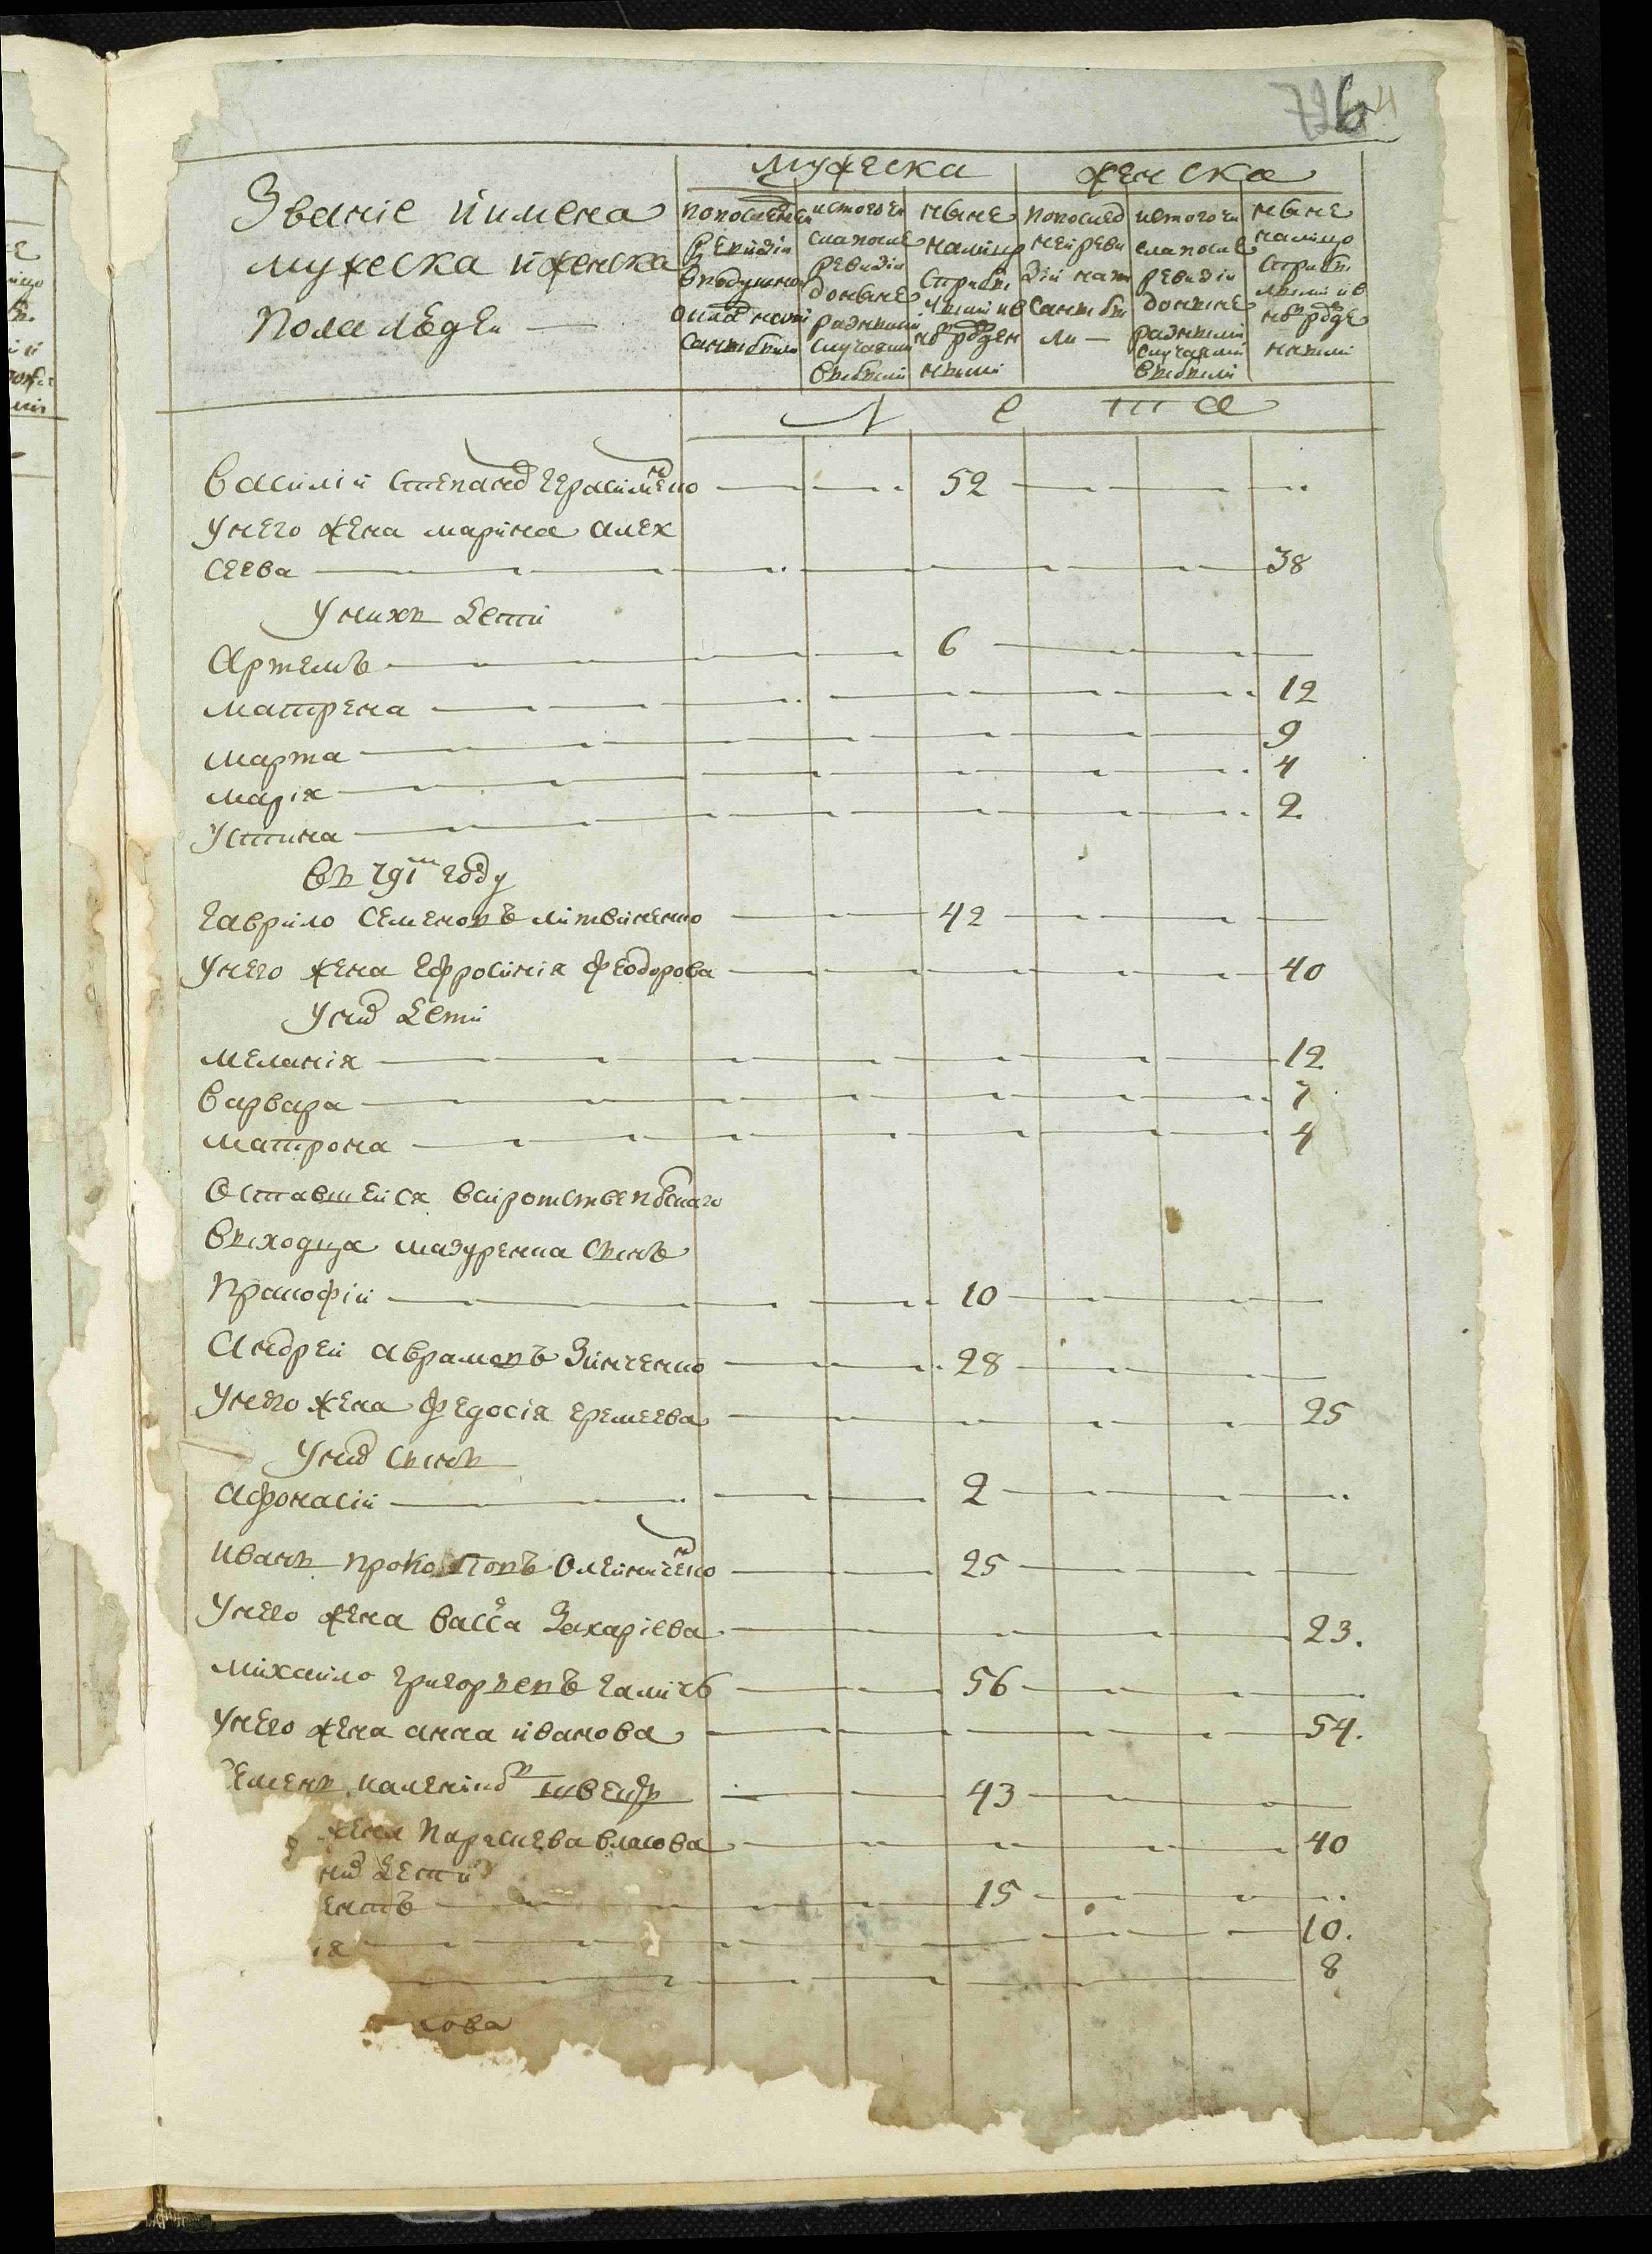 6
Званіе и имена
мужеска и женска
пола людей
мужеска
женска
по последней
ревизіи
в подушном
окладе напи
саны были
ис того чи
сла после
ревизіи
до ныне
разными
случаями
выбыли
ныне
на лицо
с прибы
лыми и в
новь рожден
ными
по послед
ней реви
зіи напи
саны бы
ли
ис того чи
сла после
ревизіи
до ныне
разными
случаями
выбыли
ныне
на лицо
с прибы
лыми и в
новь рожде
нными
Л е т а
Василій Степанов Герасименко 52
У него жена Марина Алек
сеева 38
У нихъ дети
Артемъ 6
Матрена 12
Марта 9
Марія 4
Устина 2
Въ 791м году
Гаврило Семеновъ Литвиненко 42
У него жена Ефросинія Феодорова 40
У них дети
Меланія 12
Варвара 7
Матрона 4
Оставшейся в сиротстве
выходца Мазуренка сынъ
Прокофій 10
Андрей Аврамовъ Зинченко 28
У него жена Федосія Еремеева 25
У них сынъ
Афонасій 2
Иванъ Прокоповъ Олейниченко 25
У него жена Васса Захаріева 23.
Михайло Григорьевъ Галич 56
У него жена Анна Иванова 54.
еменъ швецъ 43
жена Параскева Власова 40
них дети
ентъ 15
ія 10.
8
кова